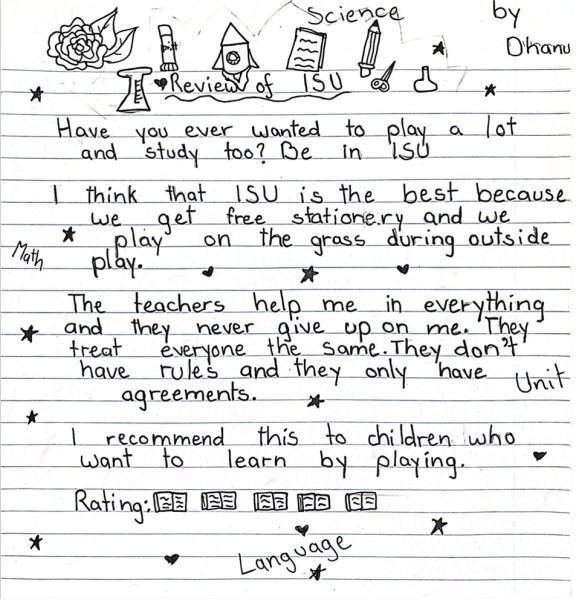 Science
by
Dhanu
Review of ISU
Have you ever wanted to play a lot
and study too? Be in ISU
I think that ISU is the best because
we get free stationery and we
play on the grass during outside
play.
Math
The teachers help me in everything
and they never give up on me. They
treat everyone the same. They don't
have rules and they only have
agreements.
Unit
I recommend this to children who
want to learn by playing.
Rating:
Language